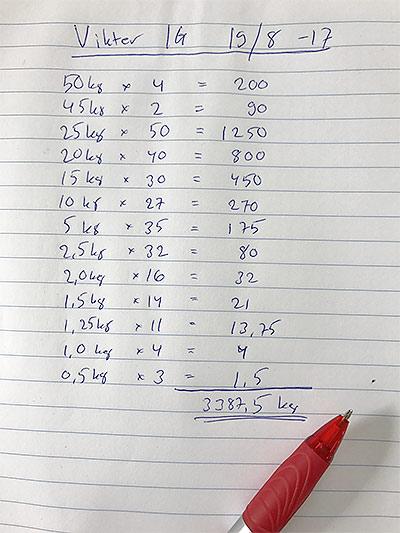 Vikter IG 19/8 -17
50kg × 4 = 200
45kg × 2 = 90
25kg × 50 = 1250
20kg × 40 = 800
15kg × 30 = 450
10kg × 27 = 270
5kg × 35 = 175
2,5kg × 32 = 80
2,0kg × 16 = 32
1,5kg × 14 = 21
1,25kg × 11 - 13,75
1,0kg × 4 = 4
0,5kg × 3 = 1,5
3387,5 kg